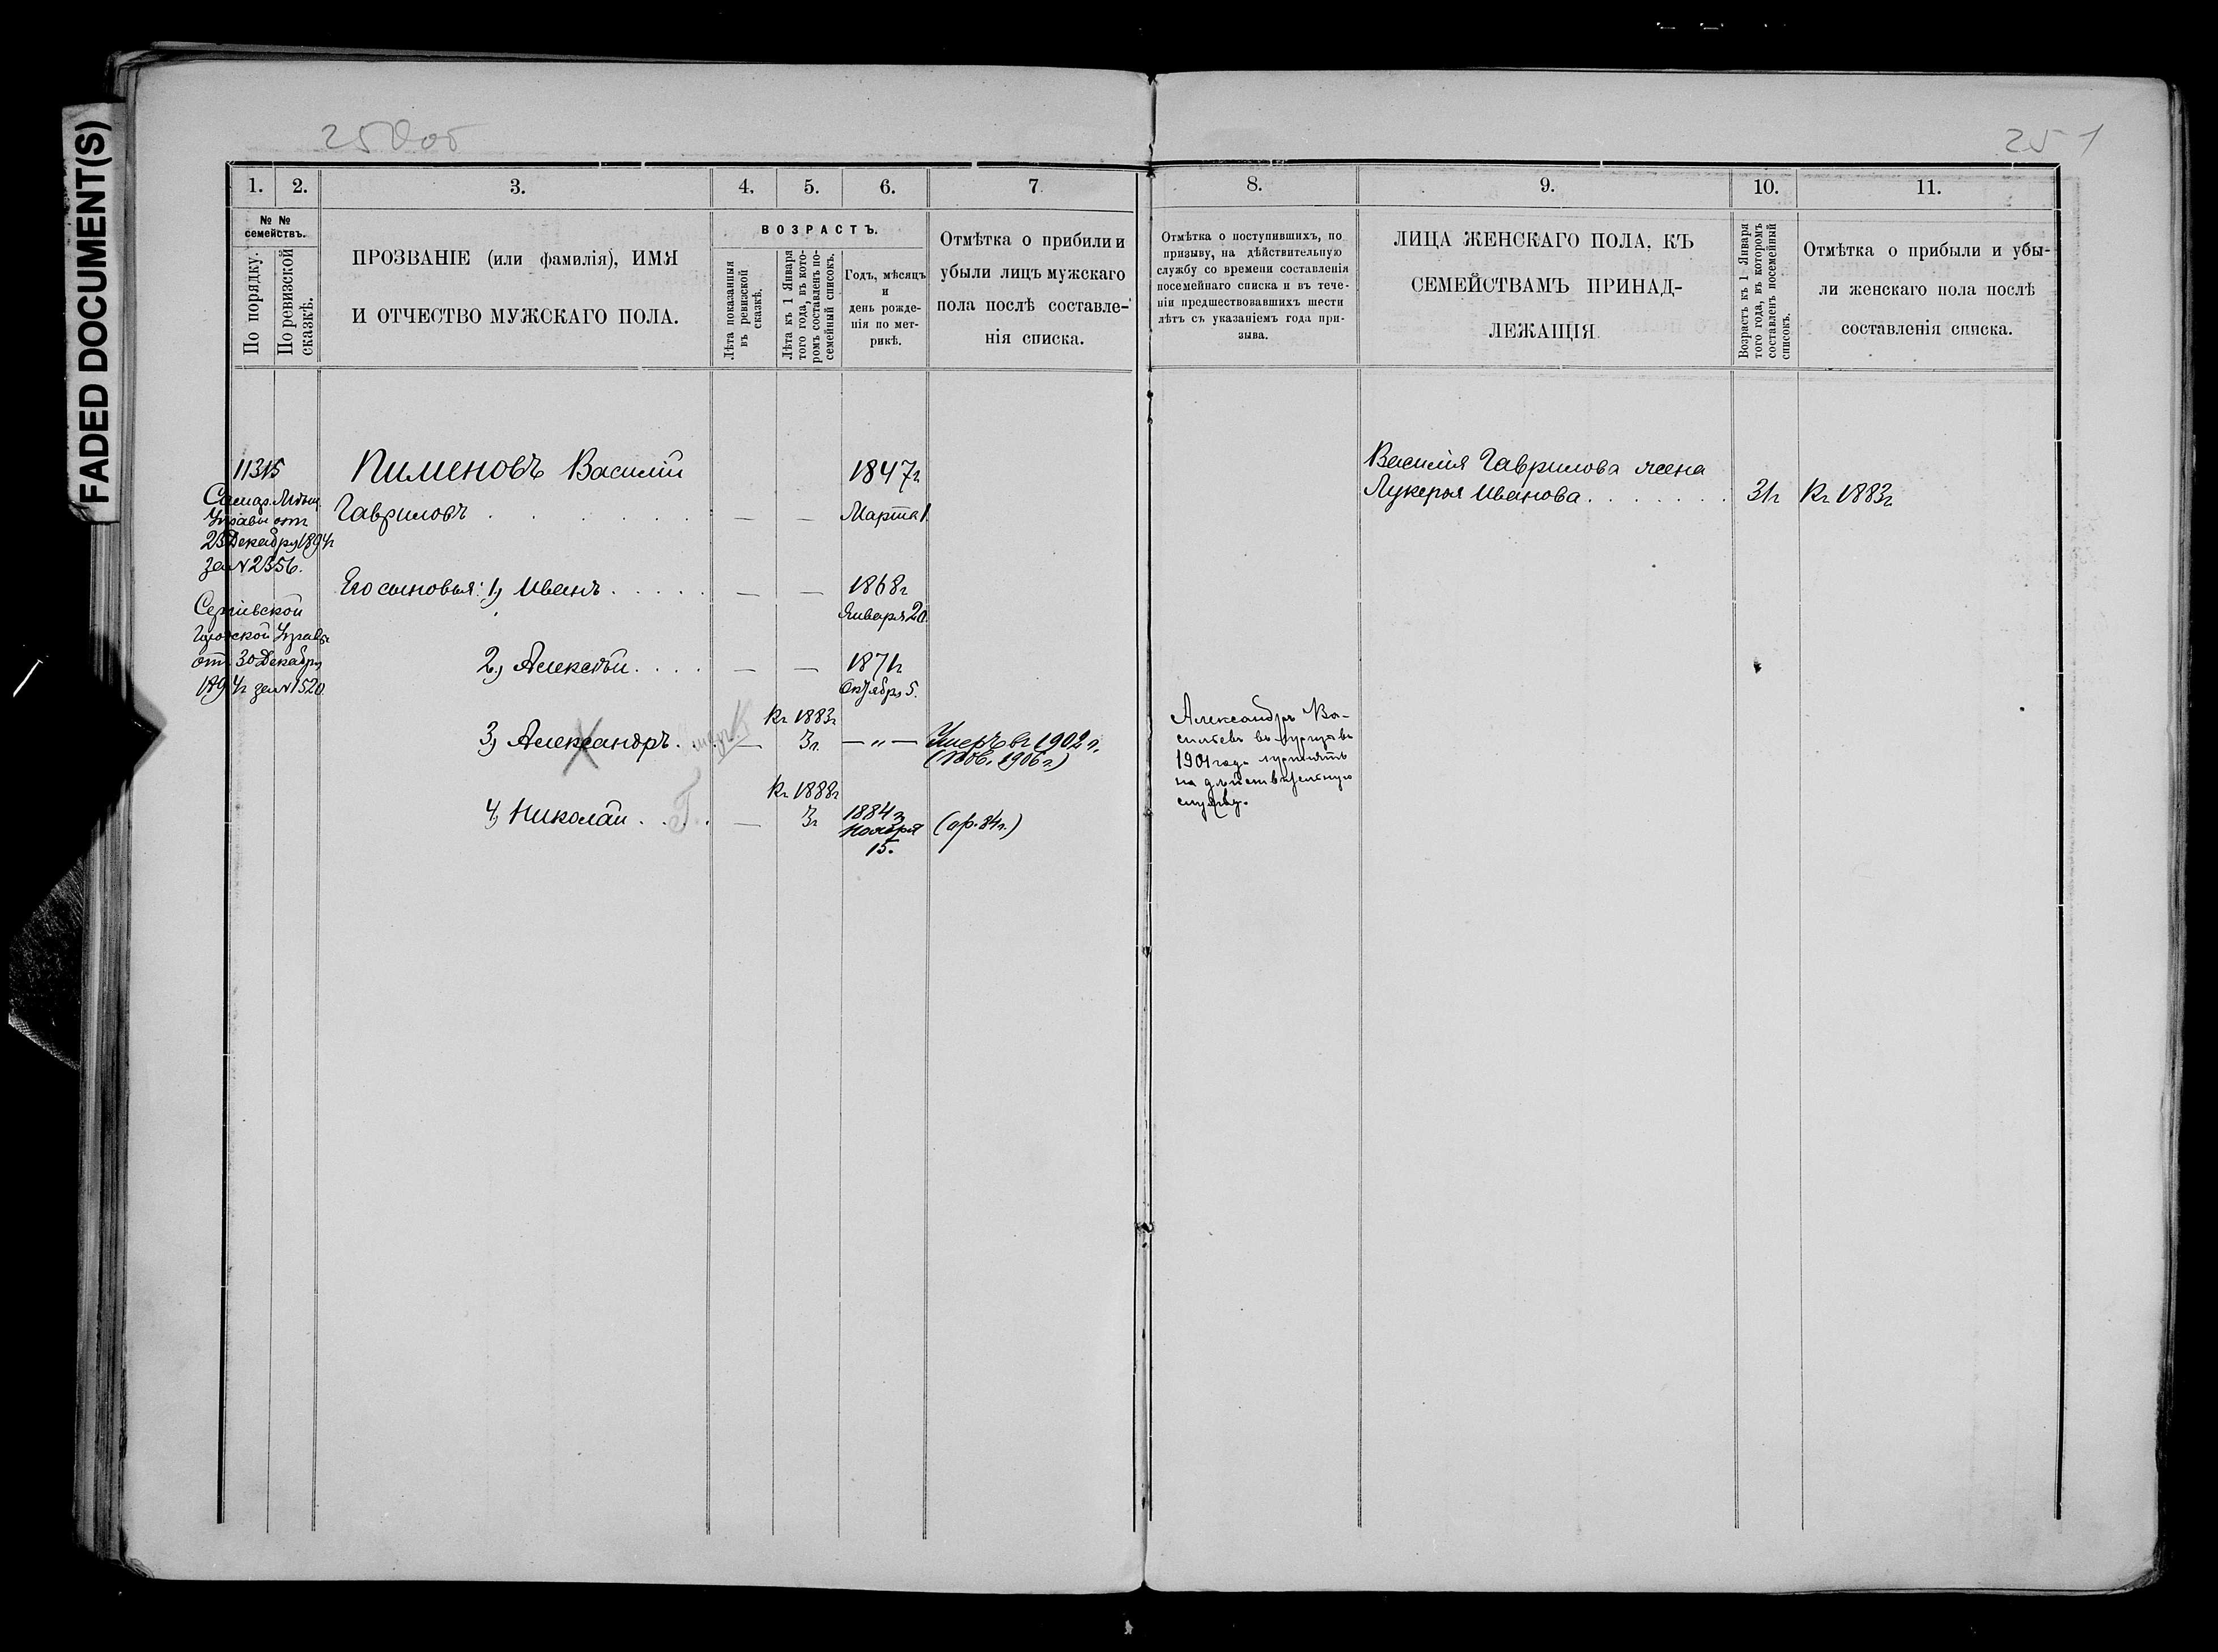 FADED DOCUMENT(S)
250об
251
1.
2.
3.
4.
5.
6.
7.
8.
9.
10.
11.
№ №
семействъ.
По порядку.
По ревизской
сказкѣ.
ПРОЗВАНІЕ (или фамилія), ИМЯ
И ОТЧЕСТВО МУЖСКАГО ПОЛА.
ВОЗРАСТЪ.
Лѣта показанныя
въ ревизской
сказкѣ.
Лѣта къ 1 Января
того года, въ кото-
ромъ составленъ по-
семейный списокъ.
Годъ, мѣсяцъ
и
день рожде-
нія по мет-
рикѣ.
Отмѣтка о прибыли и
убыли лицъ мужскаго
пола послѣ составле-
нія списка.
Отмѣтка о поступившихъ, по
призыву, на дѣйствительную
службу со времени составленія
посемейнаго списка и въ тече-
ніи предшествовавшихъ шести
лѣтъ съ указаніемъ года при-
зыва.
ЛИЦА ЖЕНСКАГО ПОЛА, КЪ
СЕМЕЙСТВАМЪ ПРИНАД-
ЛЕЖАЩІЯ.
Возрастъ къ 1 Января
того года, въ которомъ
составленъ посемейный
списокъ.
Отмѣтка о прибыли и убы-
ли женскаго пола послѣ
составленія списка.
11315
Самар. Мѣщ.
Управы отъ
23 Декабря 1894 г
за № 2356.
Сергіевской
Городской Управы
отъ 30 Декабря
1894 г за № 1520.
Пименовъ Василій
Гавриловъ . . . . . . — —
1847 г
Марта 1.
Его сыновья: 1, Иванъ . . . . . — —
1868 г
Января 20.
2, Алексѣй . . . . — —
1871 г
Октября 5.
3, Александръ . . —
Къ 1883 г
3 г. — „ —
Умеръ въ 1902 г.
1906 г.)
4, Николай . . . . —
Къ 1888 г
3 г
1884 г
Ноября
15.
84 г.)
Александръ Ва-
сильевъ въ призывъ
1901 года принятъ
на дѣйствительную
службу.
Василія Гаврилова жена
Лукерья Иванова . . . . . . .
31 г
Къ 1883 г